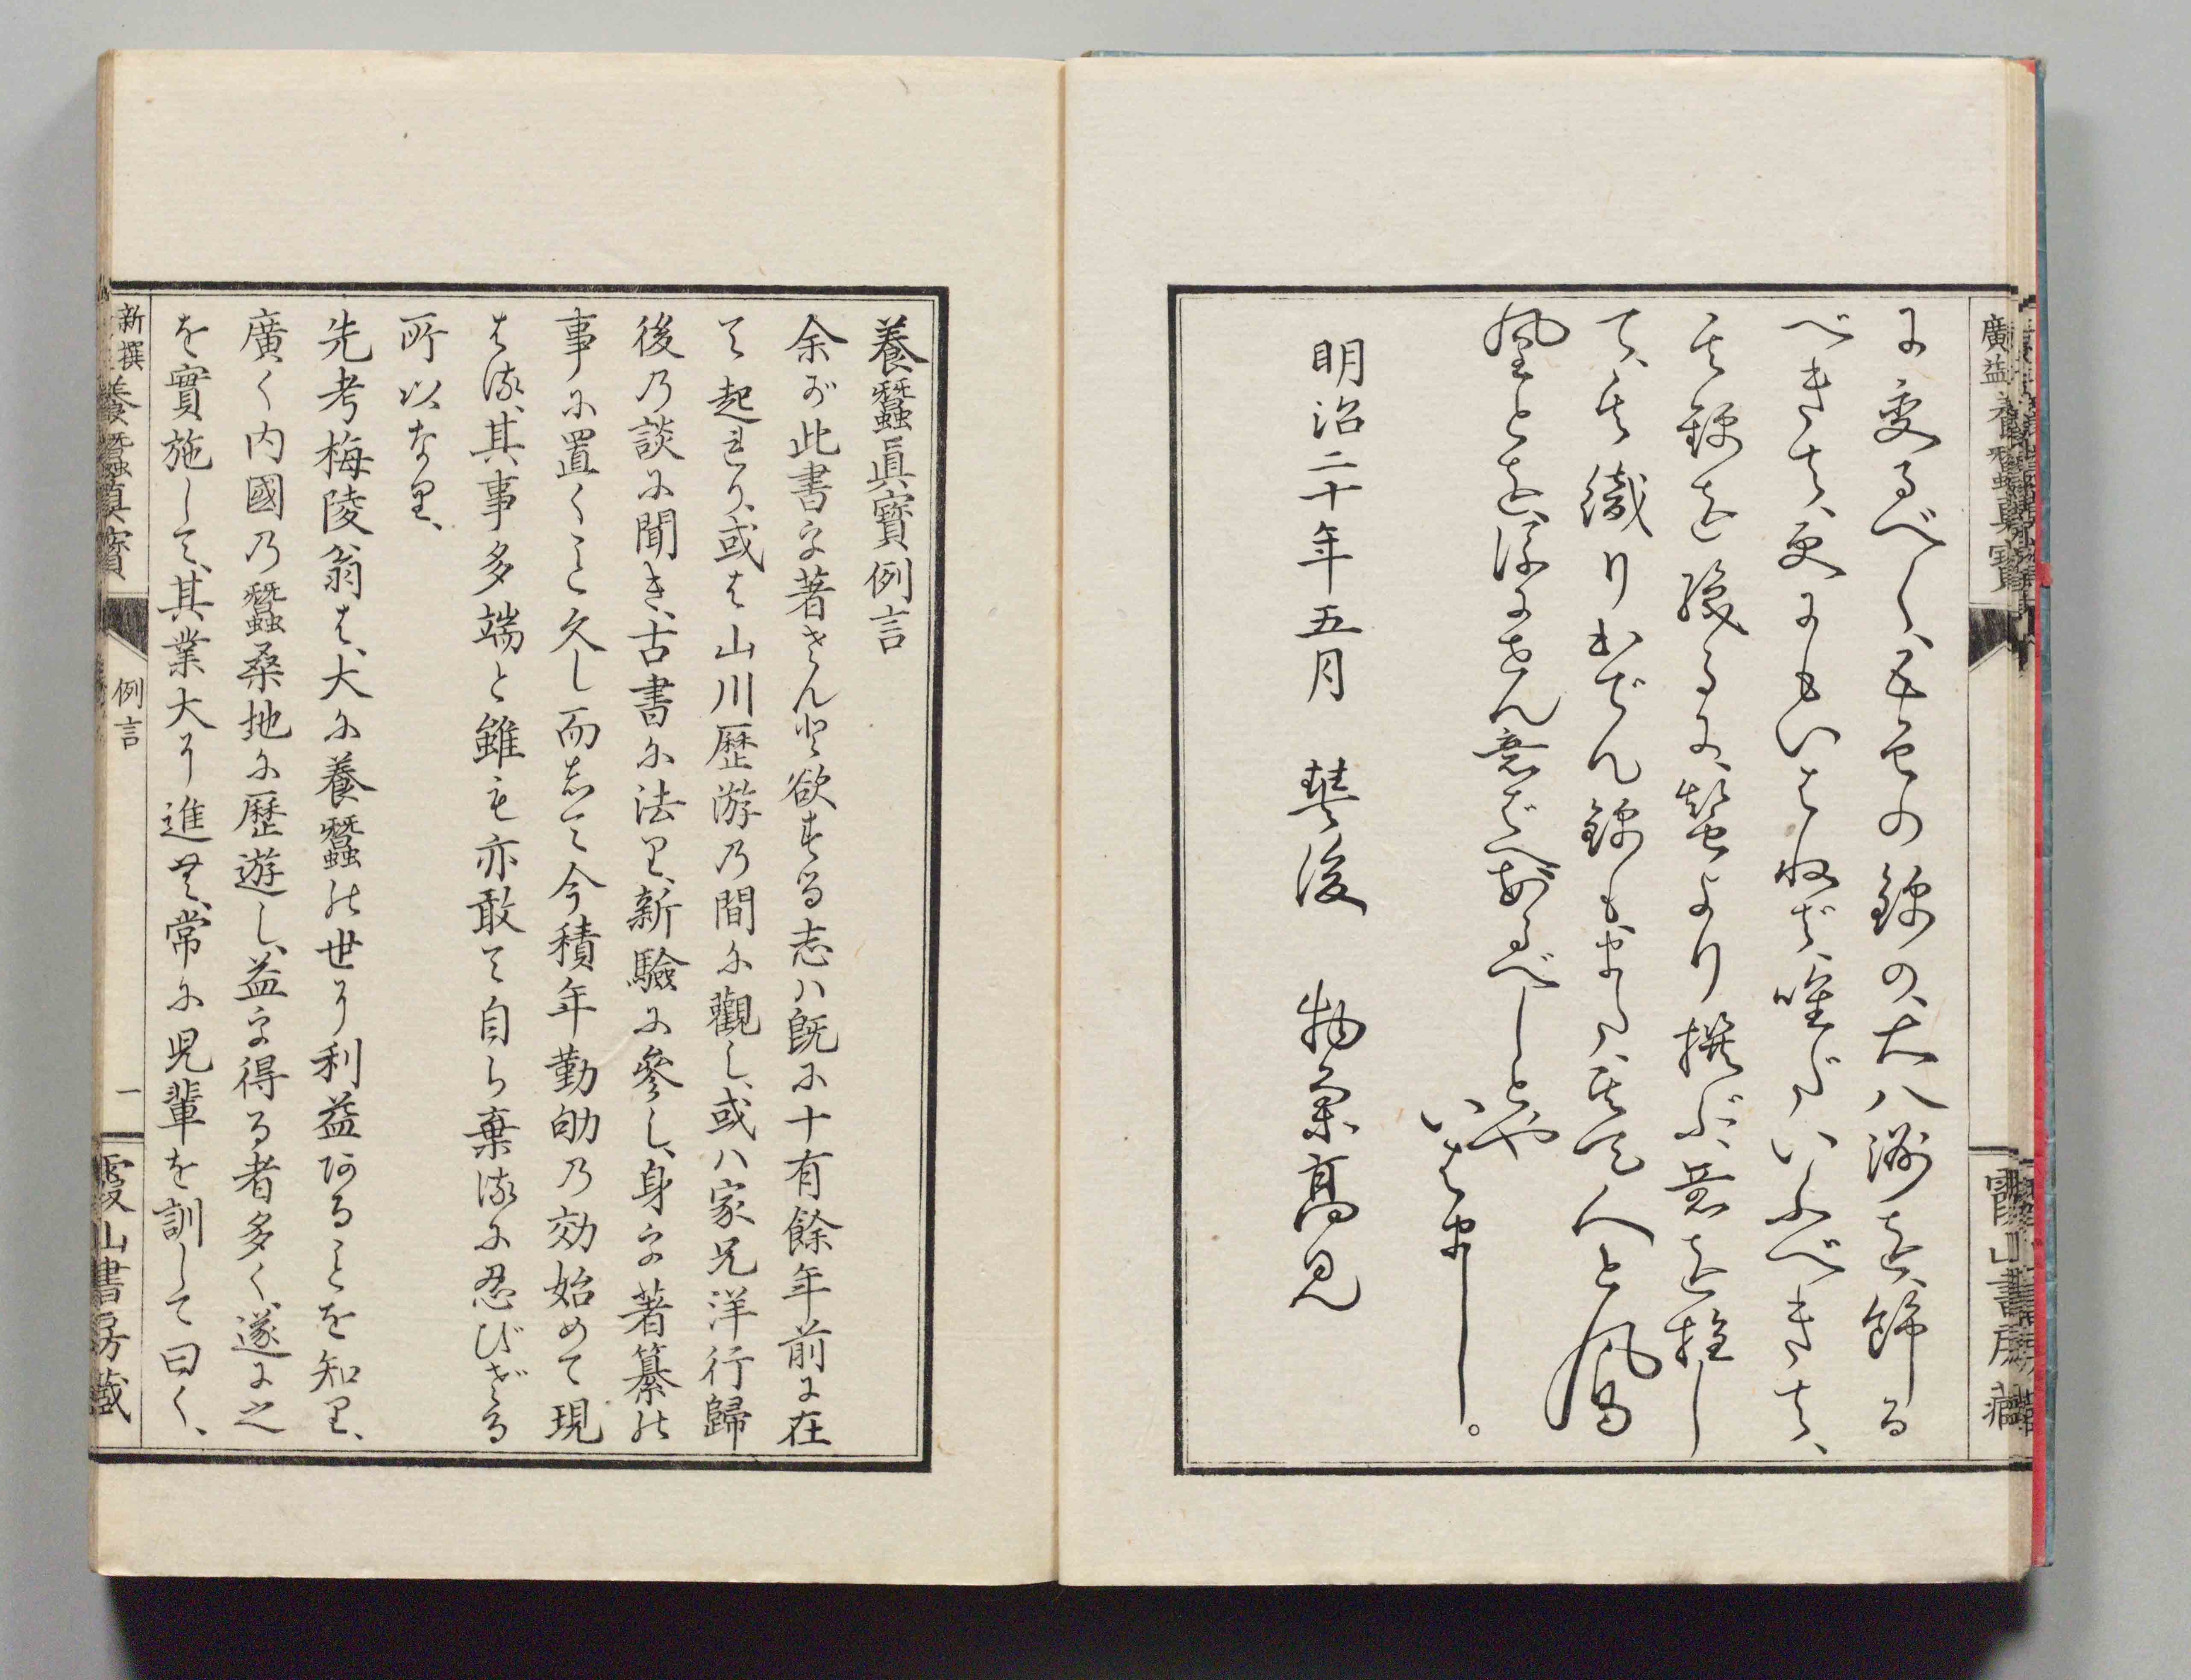 廣益養蠶眞寶
霞山書房藏
に変るべく、五色の錦の、大八洲を、飾る
べきは、更にもいはねば、唯だいふべきは、
其錦を
て、其織りいでん錦もまた、其天人と鳳
凰とを
いはまし。
明治二十年五月
豊後
物集高見
養蠶眞寶例言
余が此書を著さんと欲する志ハ既に十有餘年前に在
て起れり、或は山川歴游の間に觀し、或ハ家兄洋行歸
後の談に聞き、古書に法り、新驗に參し、身を著纂の
事に置くこと久し而して今積年勤劬の効始めて現
はる、其事多端と雖も亦敢て自ら棄るに忍びざる
所以なり、
先考梅陵翁は、大に養蠶の世に利益あることを知り、
廣く内國の蠶桑地に歴遊し、益を得る者多く、遂に之
を實施して、其業大に進む、常に児輩を訓して曰く、
新撰養蠶眞寶
例言
一
霞山書房藏